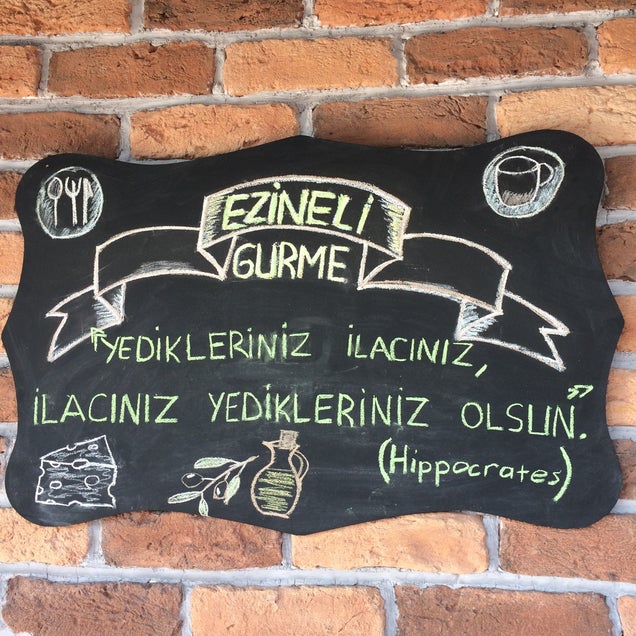 EZİNELİ
GURME
"YEDİKLERİNİZ İLACINIZ,
İLACINIZ YEDİKLERİNİZ OLSUN."
(Hippocrates)